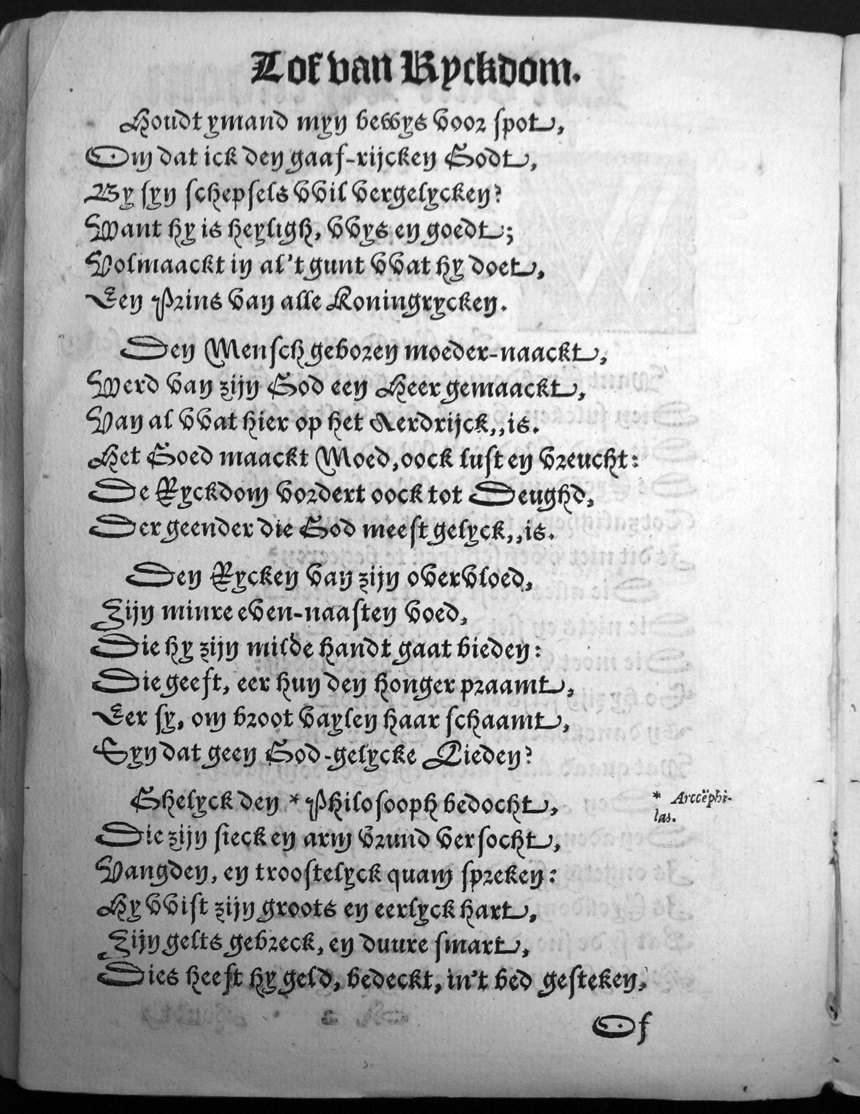 Lof van Ryckdom.
Houdt ymand myn bewys voor spot,
Om dat ick den gaaf-rijcken Godt,
By syn schepsels wil vergelycken?
Want hy is heyligh, wys en goedt;
Volmaackt in al't gunt wat hy doet,
Een Prins van alle Koningrycken.
Den Mensch geboren moeder-naackt,
Werd van zijn God een Heer gemaackt,
Van al wat hier op het Aerdrijck,,is.
Het Goed maackt Moed, oock lust en vreucht:
De Ryckdom vordert oock tot Deughd,
Der geender die God meest gelyck,,is.
Den Rycken van zijn overvloed,
Zijn minre even-naasten voed,
Die hy zijn milde handt gaat bieden:
Die geeft, eer hun den honger praamt,
Eer sy, om broot vaylen haar schaamt,
Syn dat geen God-gelycke Lieden?
Ghelyck den * Philosooph bedocht,
Die zijn sieck en arm vrund versocht,
Vangden, en troostelyck quam spreken:
Hy wist zijn groots en eerlyck hart,
Zijn gelts gebreck, en duure smart,
Dies heeft hy geld, bedeckt, in't bed gesteken,
* Arccëphi-
las.
Of